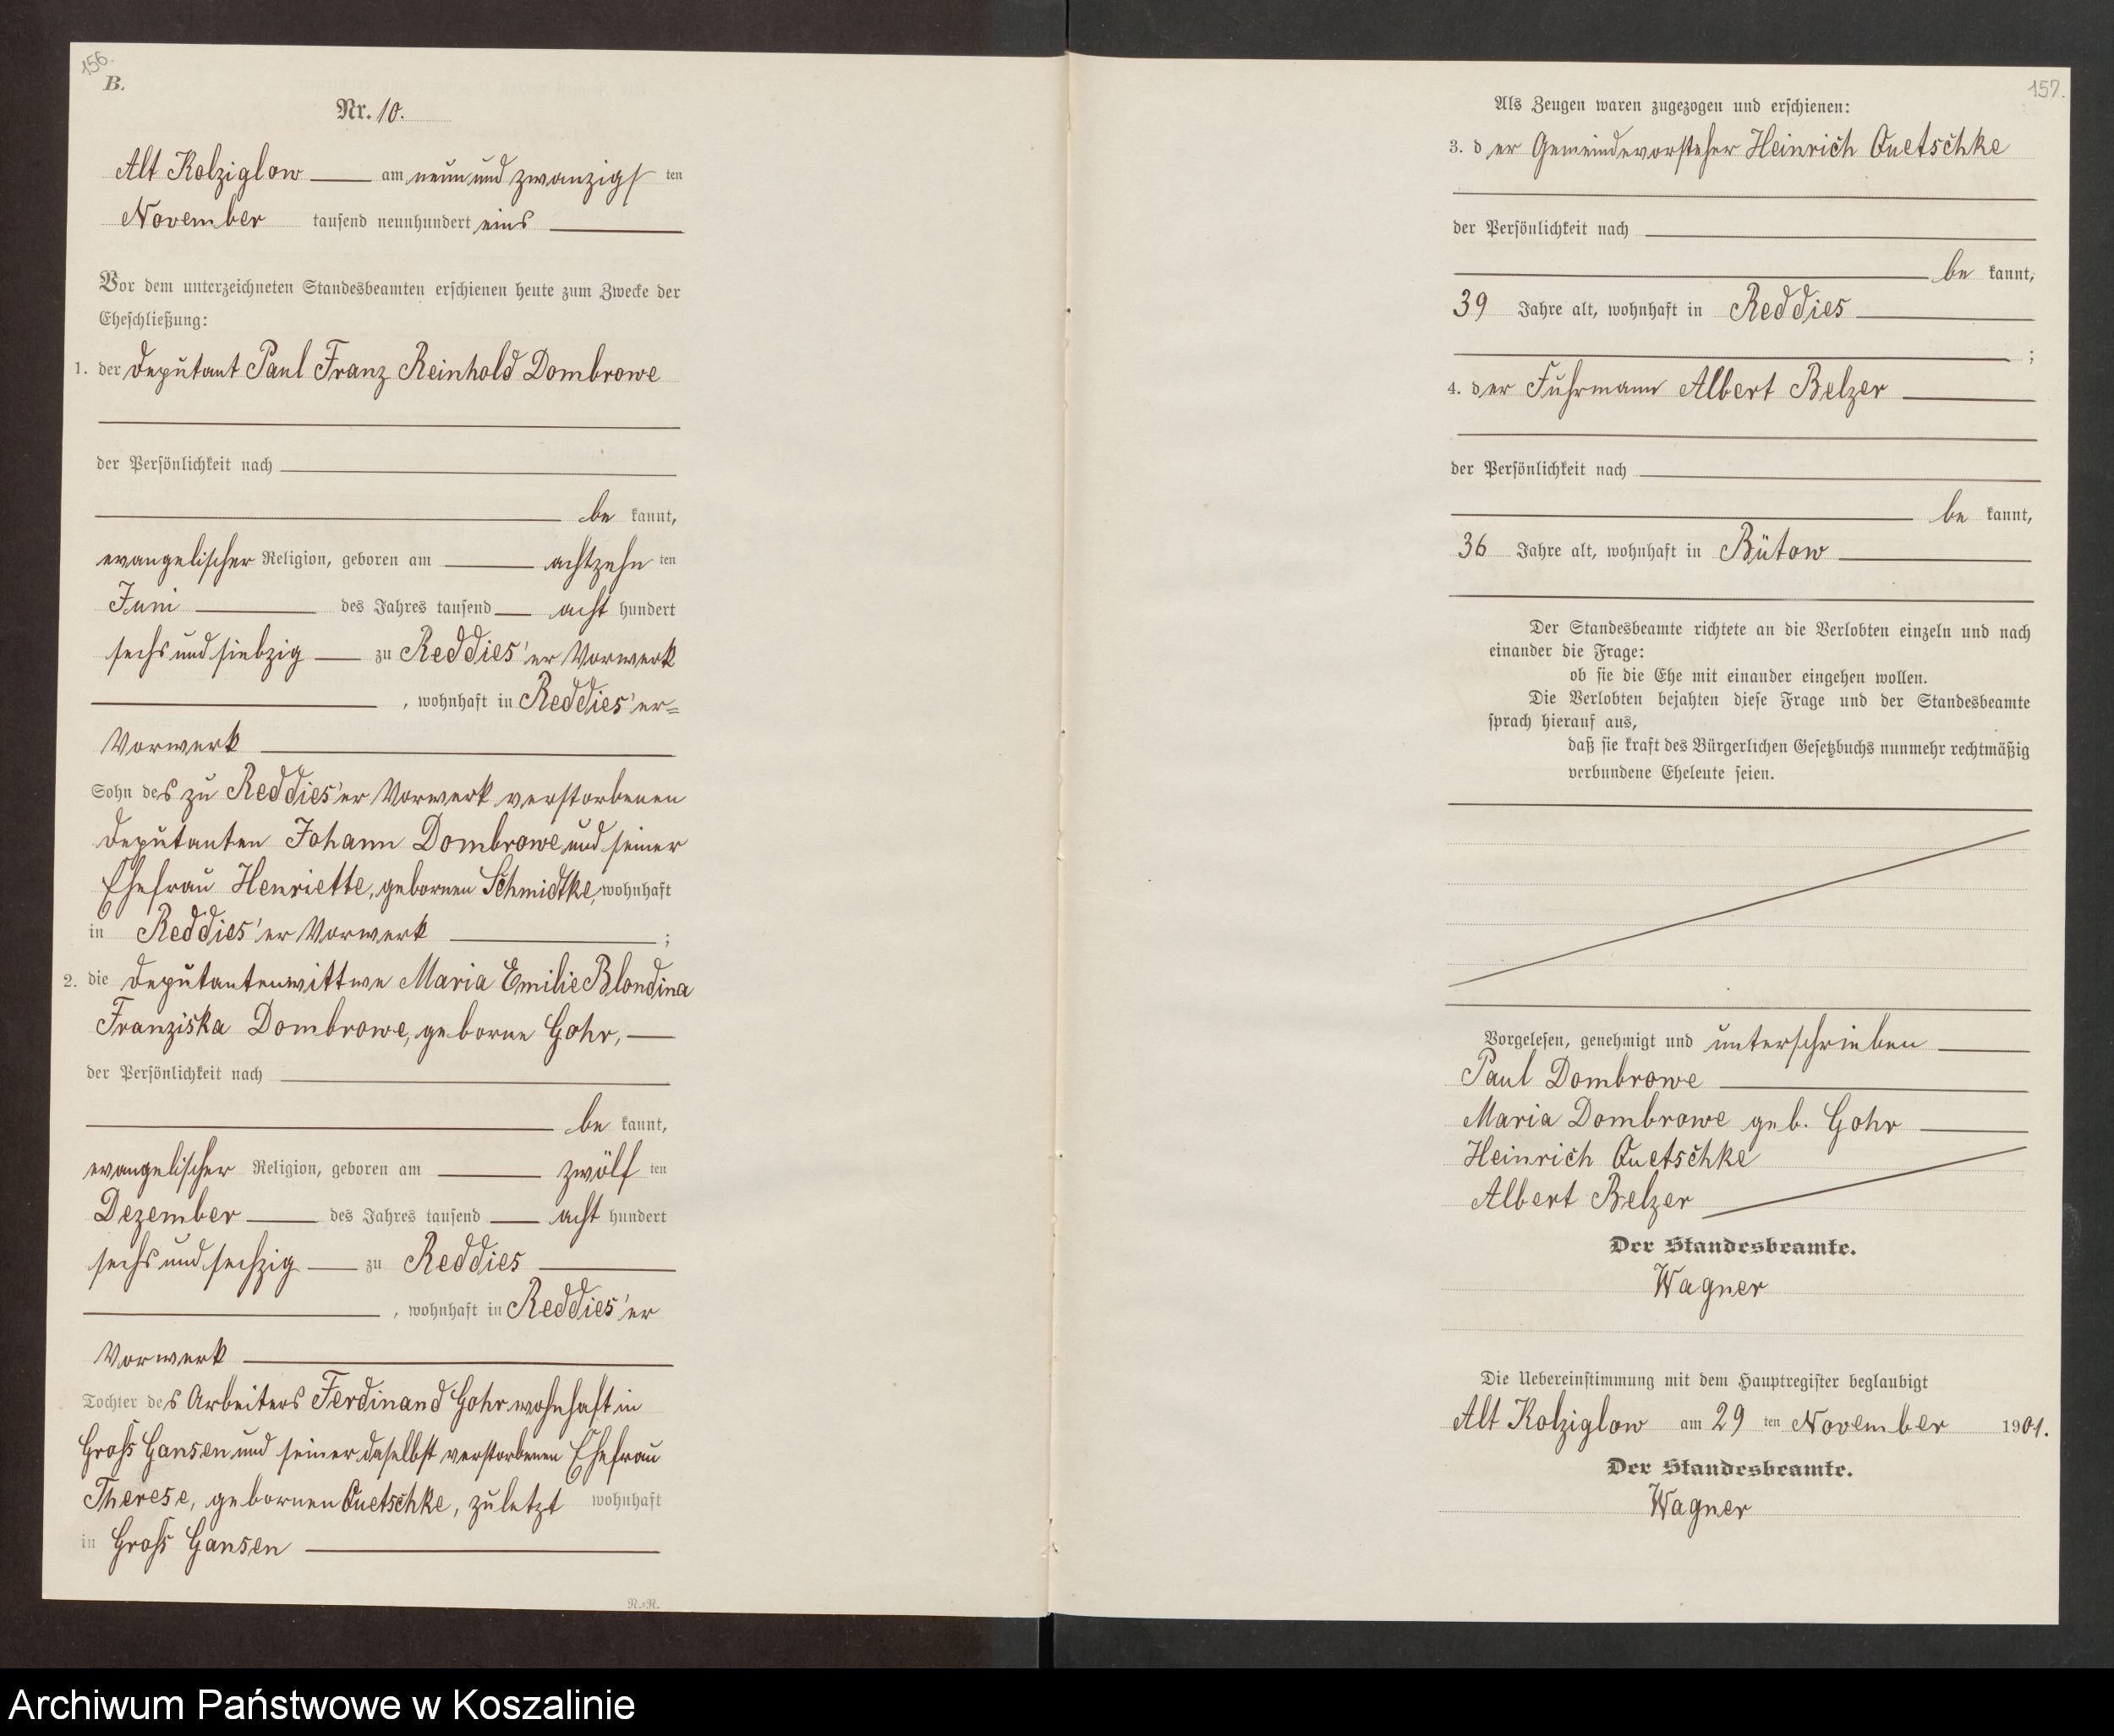 156.
B.
Nr. 10.
Alt Kolziglow am neun und zwanzigsten
November tausend neunhundert eins
Vor dem unterzeichneten Standesbeamten erschienen heute zum Zwecke der
Eheschließung:
1. der Deputant Paul Franz Reinhold Dombrowe
der Persönlichkeit nach
be kannt,
evangelischer Religion, geboren am achtzehn ten
Juni des Jahres tausend acht hundert
sechs und siebzig zu Reddies'er Vorwerk
, wohnhaft in Reddies'er=
Vorwerk
Sohn des zu Reddies'er Vorwerk verstorbenen
Deputanten Johann Dombrowe und seiner
Ehefrau Henriette, gebornen Schmidtke, wohnhaft
in Reddies'er Vorwerk ;
2. die Deputantenwittwe Maria Emilie Blondina
Franziska Dombrowe, geborne Gohr,
der Persönlichkeit nach
be kannt,
evangelischer Religion, geboren am zwölf ten
Dezember des Jahres tausend acht hundert
sechs und sechzig zu Reddies
, wohnhaft in Reddies'er
Vorwerk
Tochter des Arbeiters Ferdinand Gohr wohnhaft in
Groß Gansen und seiner daselbst verstorbenen Ehefrau
Therese, gebornen Quetschke, zuletzt wohnhaft
in Groß Gansen
R.=R.
157.
Als Zeugen waren zugezogen und erschienen:
3. der Gemeindevorsteher Heinrich Quetschke
der Persönlichkeit nach
be kannt,
39 Jahre alt, wohnhaft in Reddies
;
4. der Fuhrmann Albert Belzer
der Persönlichkeit nach
be kannt,
36 Jahre alt, wohnhaft in Bütow
Der Standesbeamte richtete an die Verlobten einzeln und nach
einander die Frage:
ob sie die Ehe mit einander eingehen wollen.
Die Verlobten bejahten diese Frage und der Standesbeamte
sprach hierauf aus,
daß sie kraft des Bürgerlichen Gesetzbuchs nunmehr rechtmäßig
verbundene Eheleute seien.
Vorgelesen, genehmigt und unterschrieben
Paul Dombrowe
Maria Dombrowe geb. Gohr
Heinrich Quetschke
Albert Belzer
Der Standesbeamte.
Wagner
Die Uebereinstimmung mit dem Hauptregister beglaubigt
Alt Kolziglow am 29 ten November 1901.
Der Standesbeamte.
Wagner
Archiwum Państwowe w Koszalinie